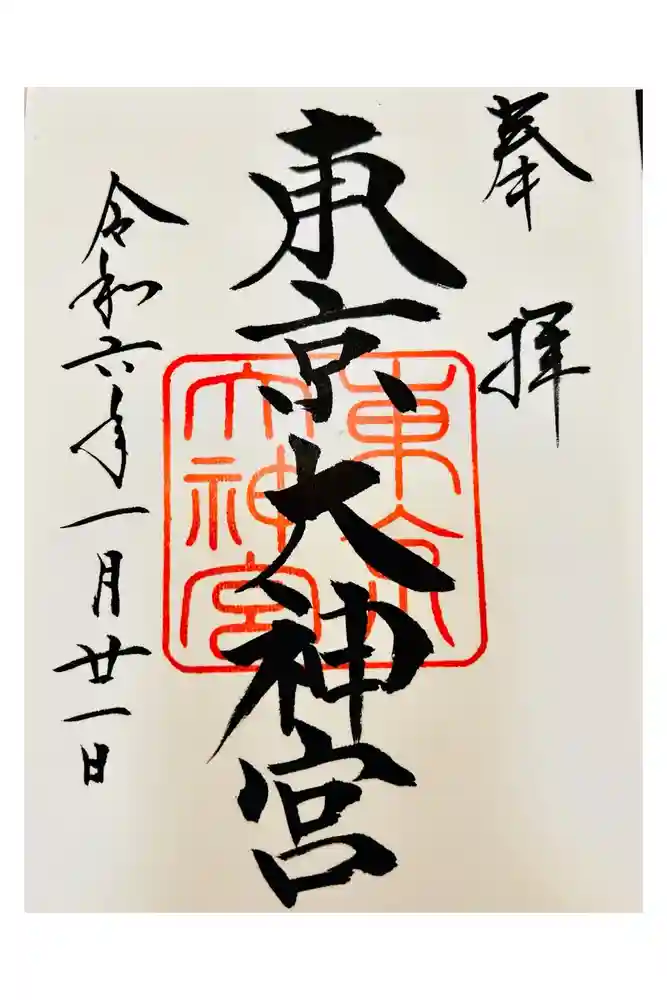 奉拝
東京大神宮
東京大神宮
令和六年一月廿一日